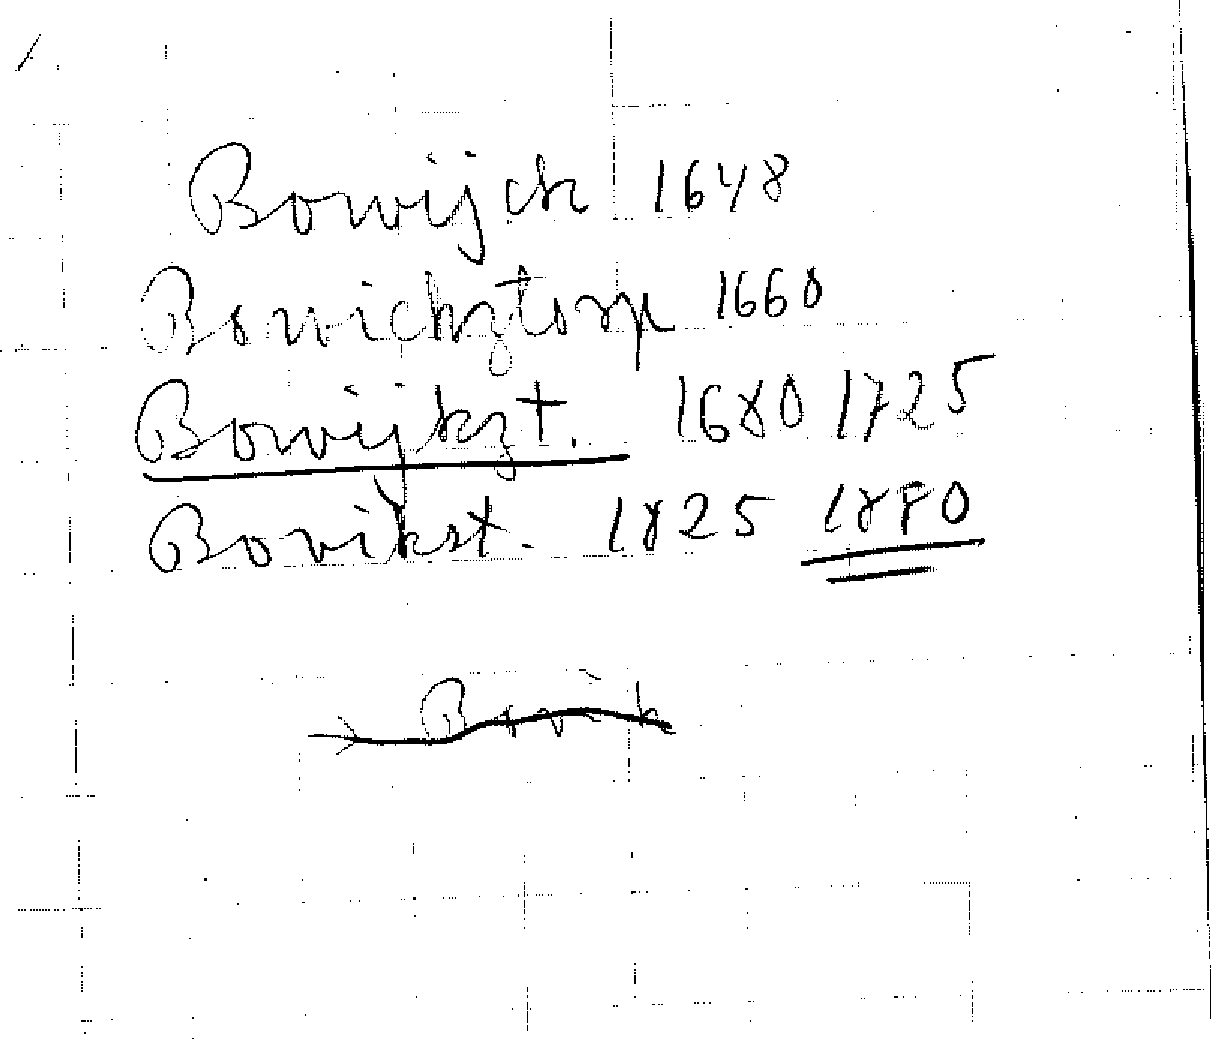 Bowijck 1648
Bowichztorp 1660
Bowijkzt. 1680 1725
Bovikst. 1825 1880
Bovik